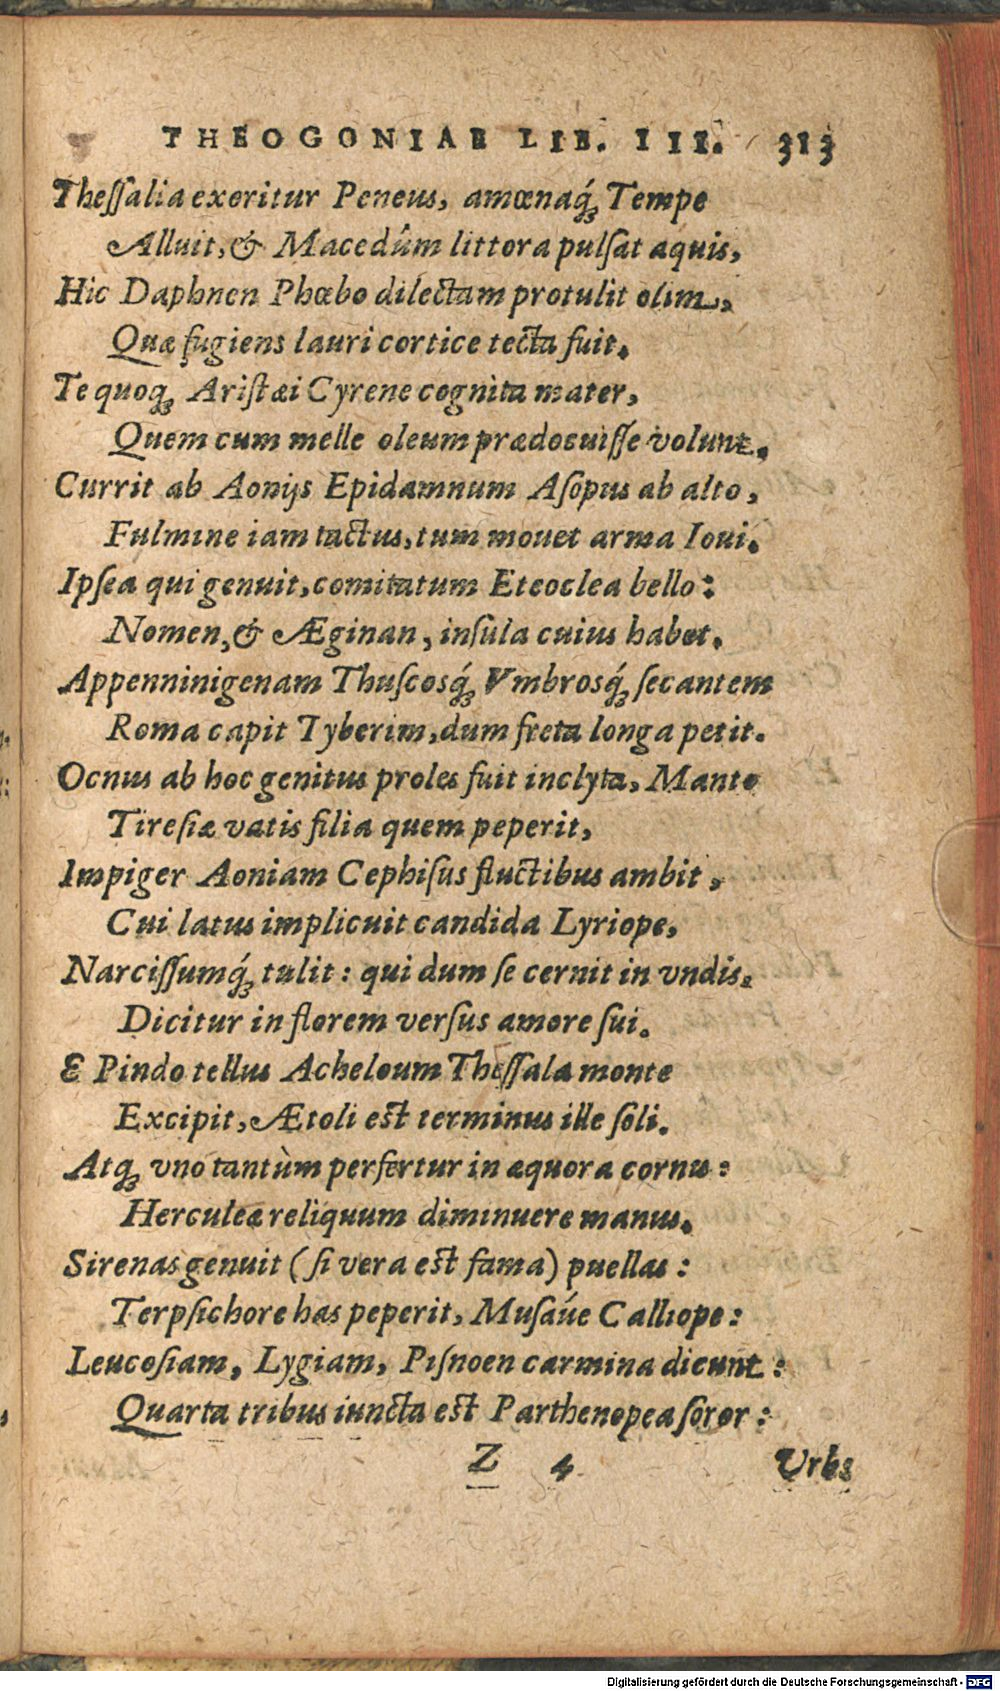 THEOGONIAE LIB. III. 313
Theſſalia exoritur Peneus, amœnaq́; Tempe
Alluit, & Macedûm littora pulſat aquis,
Hic Daphnen Phœbo dilectam protulit olim,
Quæ fugiens lauri cortice tecta fuit.
Te quoq; Ariſtæi Cyrene cognita mater,
Quem cum melle oleum prædocuiſſe volunt.
Currit ab Aonijs Epidamnum Aſopus ab alto,
Fulmine iam tactus, tum mouet arma Ioui.
Ipſea qui genuit, comitatum Eteoclea bello:
Nomen, & Æginan, inſula cuius habet.
Appenninigenam Thuſcosq́; Vmbrosq́; ſecantem
Roma capit Tyberim, dum freta longa petit.
Ocnus ab hoc genitus proles fuit inclyta, Manto
Tireſiæ vatis filia quem peperit,
Impiger Aoniam Cephiſus fluctibus ambit,
Cui latus implicuit candida Lyriope,
Narciſſumq́; tulit: qui dum ſe cernit in vndis.
Dicitur in florem verſus amore ſui.
E Pindo tellus Acheloum Theſſala monte
Excipit, Ætoli eſt terminus ille ſoli.
Atq; vno tantùm perfertur in æquora cornu:
Herculeæ reliquum diminuere manus.
Sirenas genuit (ſi vera eſt fama) puellas:
Terpſichore has peperit, Muſáue Calliope:
Leucoſiam, Lygiam, Piſnoen carmina dicunt:
Quarta tribus iuncta eſt Parthenopea ſoror:
Z 4 Urbs
Digitalisierung gefördert durch die Deutsche Forschungsgemeinschaft - DFG